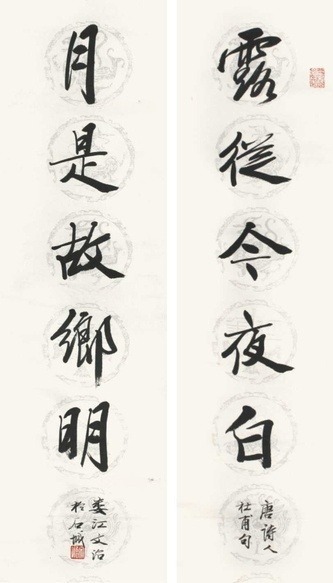 露從今夜白
唐詩人
杜甫句
月是故鄉明
婁江文治
於石城